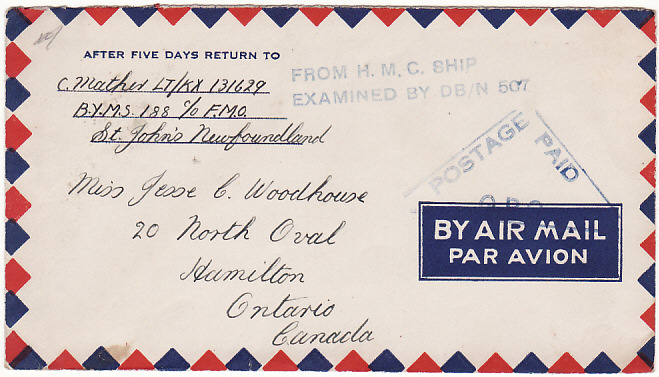 AFTER FIVE DAYS RETURN TO
C. Mather LT/KX 131629
B.Y.M.S. 188 c/o F.M.O.
St. John's Newfoundland
FROM H. M. C. SHIP
EXAMINED BY DB/N 507
POSTAGE PAID
BY AIR MAIL
PAR AVION
Miss Jesse C. Woodhouse
20 North Oval
Hamilton
Ontario
Canada